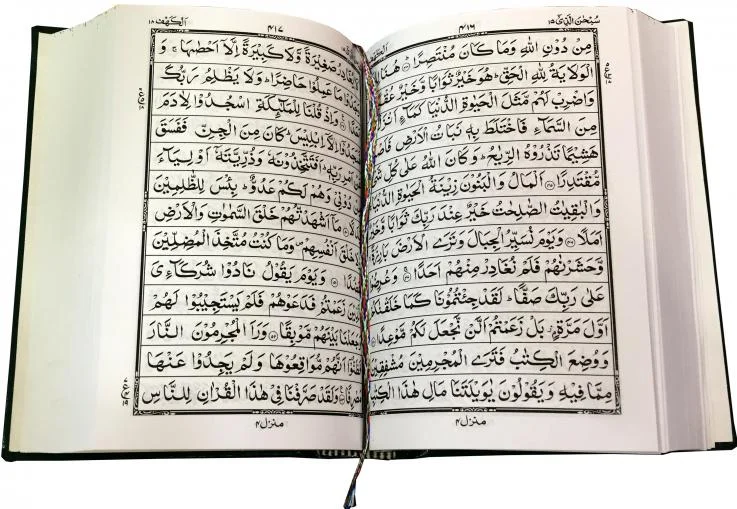 سُبْحٰنَ الَّذِیْۤ ۱۵
۴۱۶
مِنْ دُوْنِ اللّٰهِ وَمَا كَانَ مُنْتَصِرًا ﴿۴۳﴾ هُنَالِ
الْوَلَايَةُ لِلّٰهِ الْحَقِّ ؕ هُوَ خَيْرٌ ثَوَابًا وَّخَيْرٌ عُقْبًا
وَاضْرِبْ لَهُمْ مَّثَلَ الْحَيٰوةِ الدُّنْيَا كَمَآءٍ اَنْزَلْ
مِنَ السَّمَآءِ فَاخْتَلَطَ بِهٖ نَبَاتُ الْاَرْضِ فَاَصْ
هَشِيْمًا تَذْرُوْهُ الرِّيٰحُ ؕ وَكَانَ اللّٰهُ عَلٰى كُلِّ شَ
مُّقْتَدِرًا ﴿۴۵﴾ اَلْمَالُ وَالْبَنُوْنَ زِيْنَةُ الْحَيٰوةِ الدُّنْ
وَالْبٰقِيٰتُ الصّٰلِحٰتُ خَيْرٌ عِنْدَ رَبِّكَ ثَوَابًا وَّخَيْ
اَمَلًا ﴿۴۶﴾ وَيَوْمَ نُسَيِّرُ الْجِبَالَ وَتَرَى الْاَرْضَ بَارِزَ
وَّحَشَرْنٰهُمْ فَلَمْ نُغَادِرْ مِنْهُمْ اَحَدًا ﴿۴۷﴾ وَعُرِضُ
عَلٰى رَبِّكَ صَفًّا ؕ لَقَدْ جِئْتُمُوْنَا كَمَا خَلَقْنٰ
اَوَّلَ مَرَّةٍۭ ؗ بَلْ زَعَمْتُمْ اَلَّنْ نَّجْعَلَ لَكُمْ مَّوْعِدًا
وَوُضِعَ الْكِتٰبُ فَتَرَى الْمُجْرِمِيْنَ مُشْفِقِيْنَ
مِمَّا فِيْهِ وَيَقُوْلُوْنَ يٰوَيْلَتَنَا مَالِ هٰذَا الْكِتٰبِ
منزل ۴
اَلْكَهْف ۱۸
۴۱۷
غَادِرُ صَغِيْرَةً وَّلَا كَبِيْرَةً اِلَّاۤ اَحْصٰىهَا ۚ وَ
جَدُوْا مَا عَمِلُوْا حَاضِرًا ؕ وَلَا يَظْلِمُ رَبُّكَ
حَدًا ﴿۴۹﴾ وَاِذْ قُلْنَا لِلْمَلٰٓئِكَةِ اسْجُدُوْا لِاٰدَمَ
جَدُوْۤا اِلَّاۤ اِبْلِيْسَ ؕ كَانَ مِنَ الْجِنِّ فَفَسَقَ
اَمْرِ رَبِّهٖ ؕ اَفَتَتَّخِذُوْنَهٗ وَذُرِّيَّتَهٗۤ اَوْلِيَآءَ
دُوْنِيْ وَهُمْ لَكُمْ عَدُوٌّ ؕ بِئْسَ لِلظّٰلِمِيْنَ
لًا ﴿۵۰﴾ مَاۤ اَشْهَدْتُّهُمْ خَلْقَ السَّمٰوٰتِ وَالْاَرْضِ
خَلْقَ اَنْفُسِهِمْ ۪ وَمَا كُنْتُ مُتَّخِذَ الْمُضِلِّيْنَ
ضُدًا ﴿۵۱﴾ وَيَوْمَ يَقُوْلُ نَادُوْا شُرَكَآءِيَ
ذِيْنَ زَعَمْتُمْ فَدَعَوْهُمْ فَلَمْ يَسْتَجِيْبُوْا لَهُمْ
جَعَلْنَا بَيْنَهُمْ مَّوْبِقًا ﴿۵۲﴾ وَرَاَ الْمُجْرِمُوْنَ النَّارَ
ظَنُّوْۤا اَنَّهُمْ مُّوَاقِعُوْهَا وَلَمْ يَجِدُوْا عَنْهَا
صْرِفًا ﴿۵۳﴾ وَلَقَدْ صَرَّفْنَا فِيْ هٰذَا الْقُرْاٰنِ لِلنَّاسِ
منزل ۴